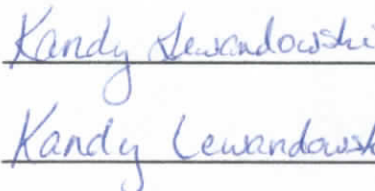 Kandy Lewandowski
Kandy Lewandowsk